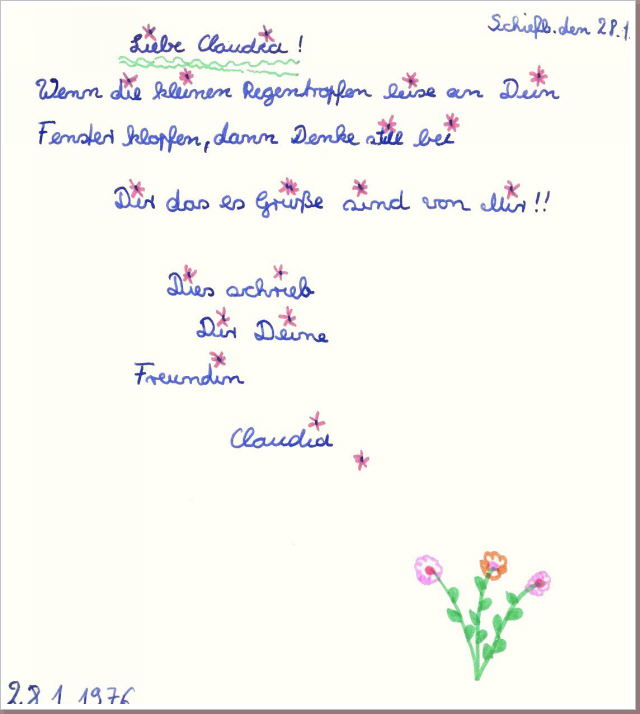 Schießb. den 28.1.
Liebe Claudia !
Wenn die kleinen Regentropfen leise an Dein
Fenster klopfen, dann Denke still bei
Dir das es Grüße sind von Mir !!
Dies schrieb
Dir Deine
Freundin
Claudia
28 1 1976